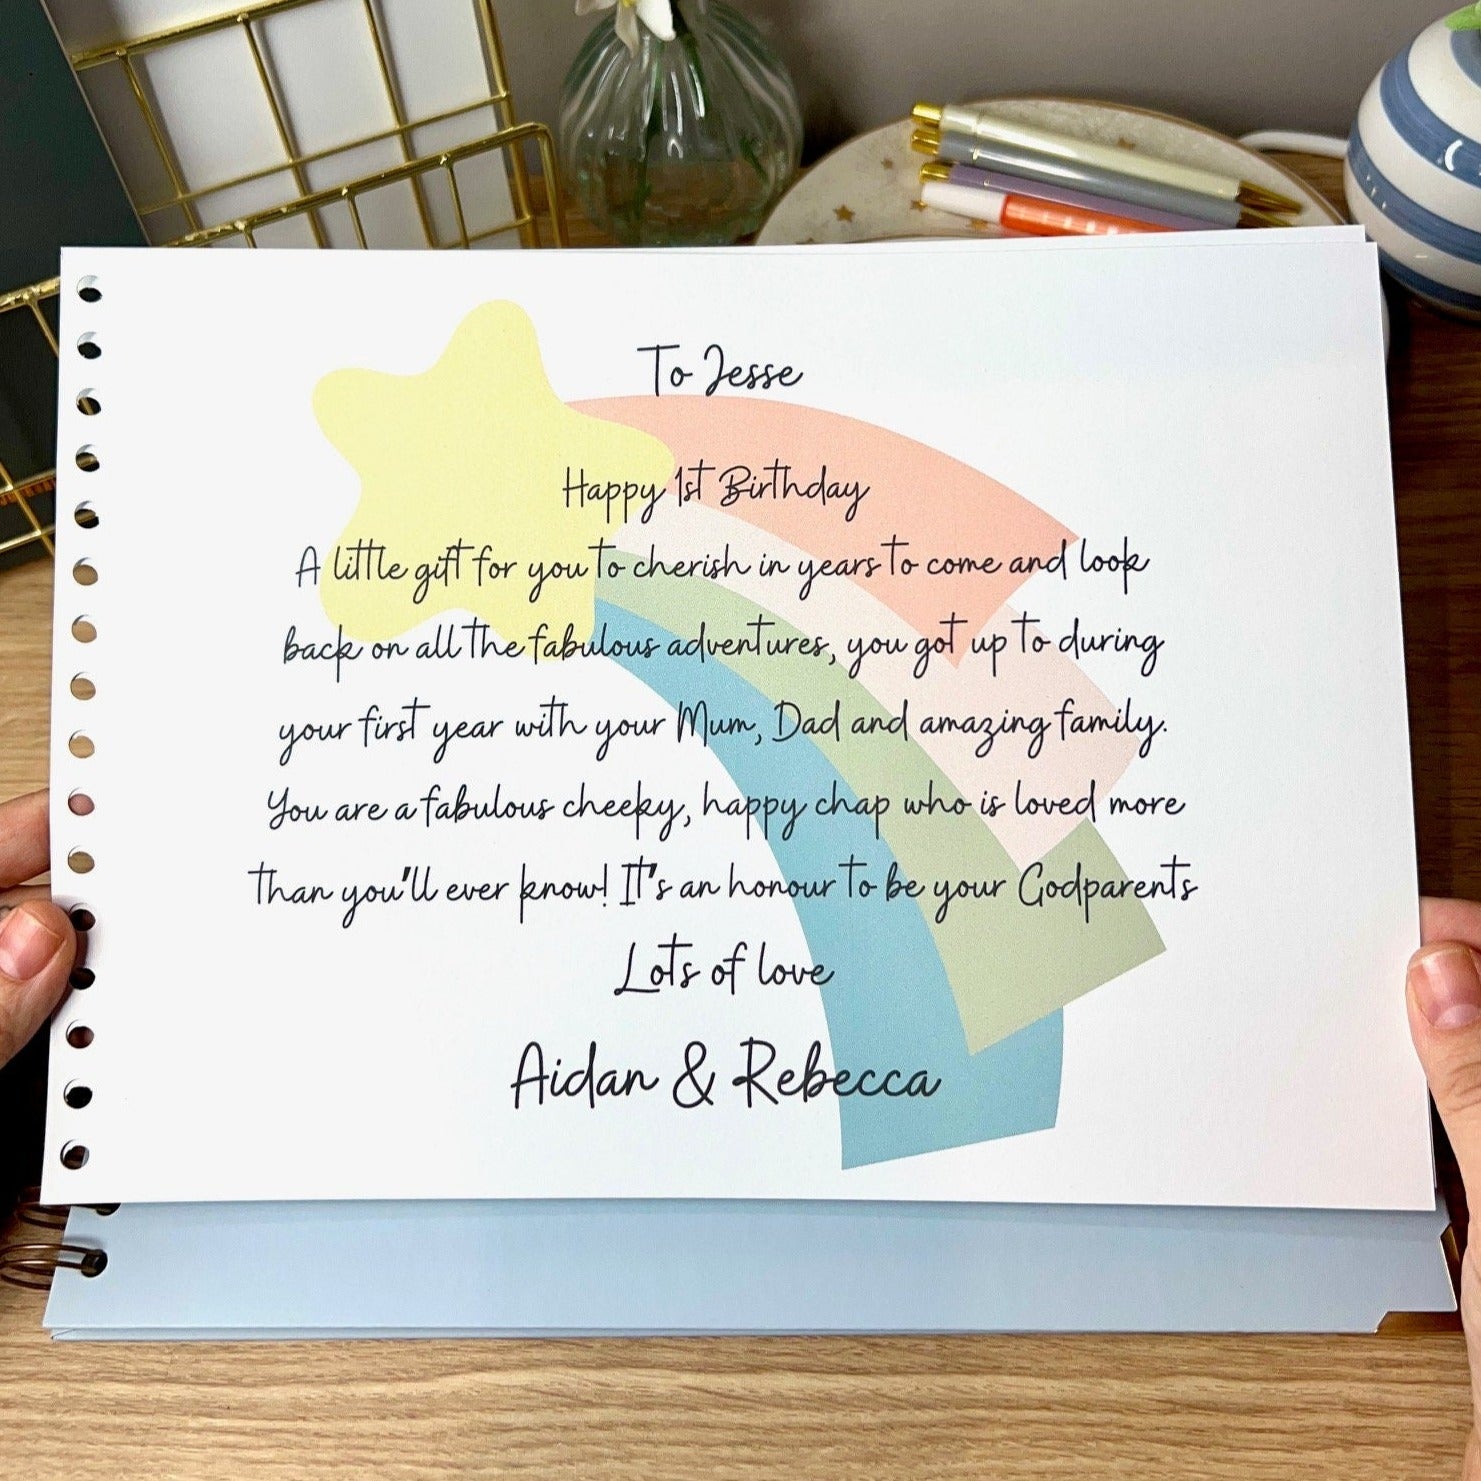 To Jesse
Happy 1st Birthday
A little gift for you to cherish in years to come and look
back on all the fabulous adventures, you got up to during
your first year with your Mum, Dad and amazing family.
You are a fabulous cheeky, happy chap who is loved more
than you'll ever know! It's an honour to be your Godparents
Lots of love
Aidan & Rebecca